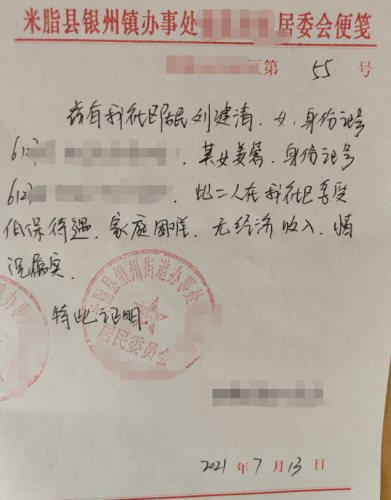 米脂县银州镇办事处 居委会便笺
第 55 号
兹有我社区居民刘建清,女,身份证号
612 ,其女姜篙,身份证号
612 ,此二人在我社区享受
低保待遇,家庭困难,无经济收入,情
况属实。
特此证明.
米脂县银州街道办事处
居民委员会
2021 年 7 月 13 日